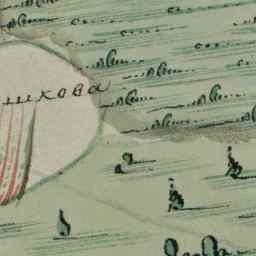 шкова